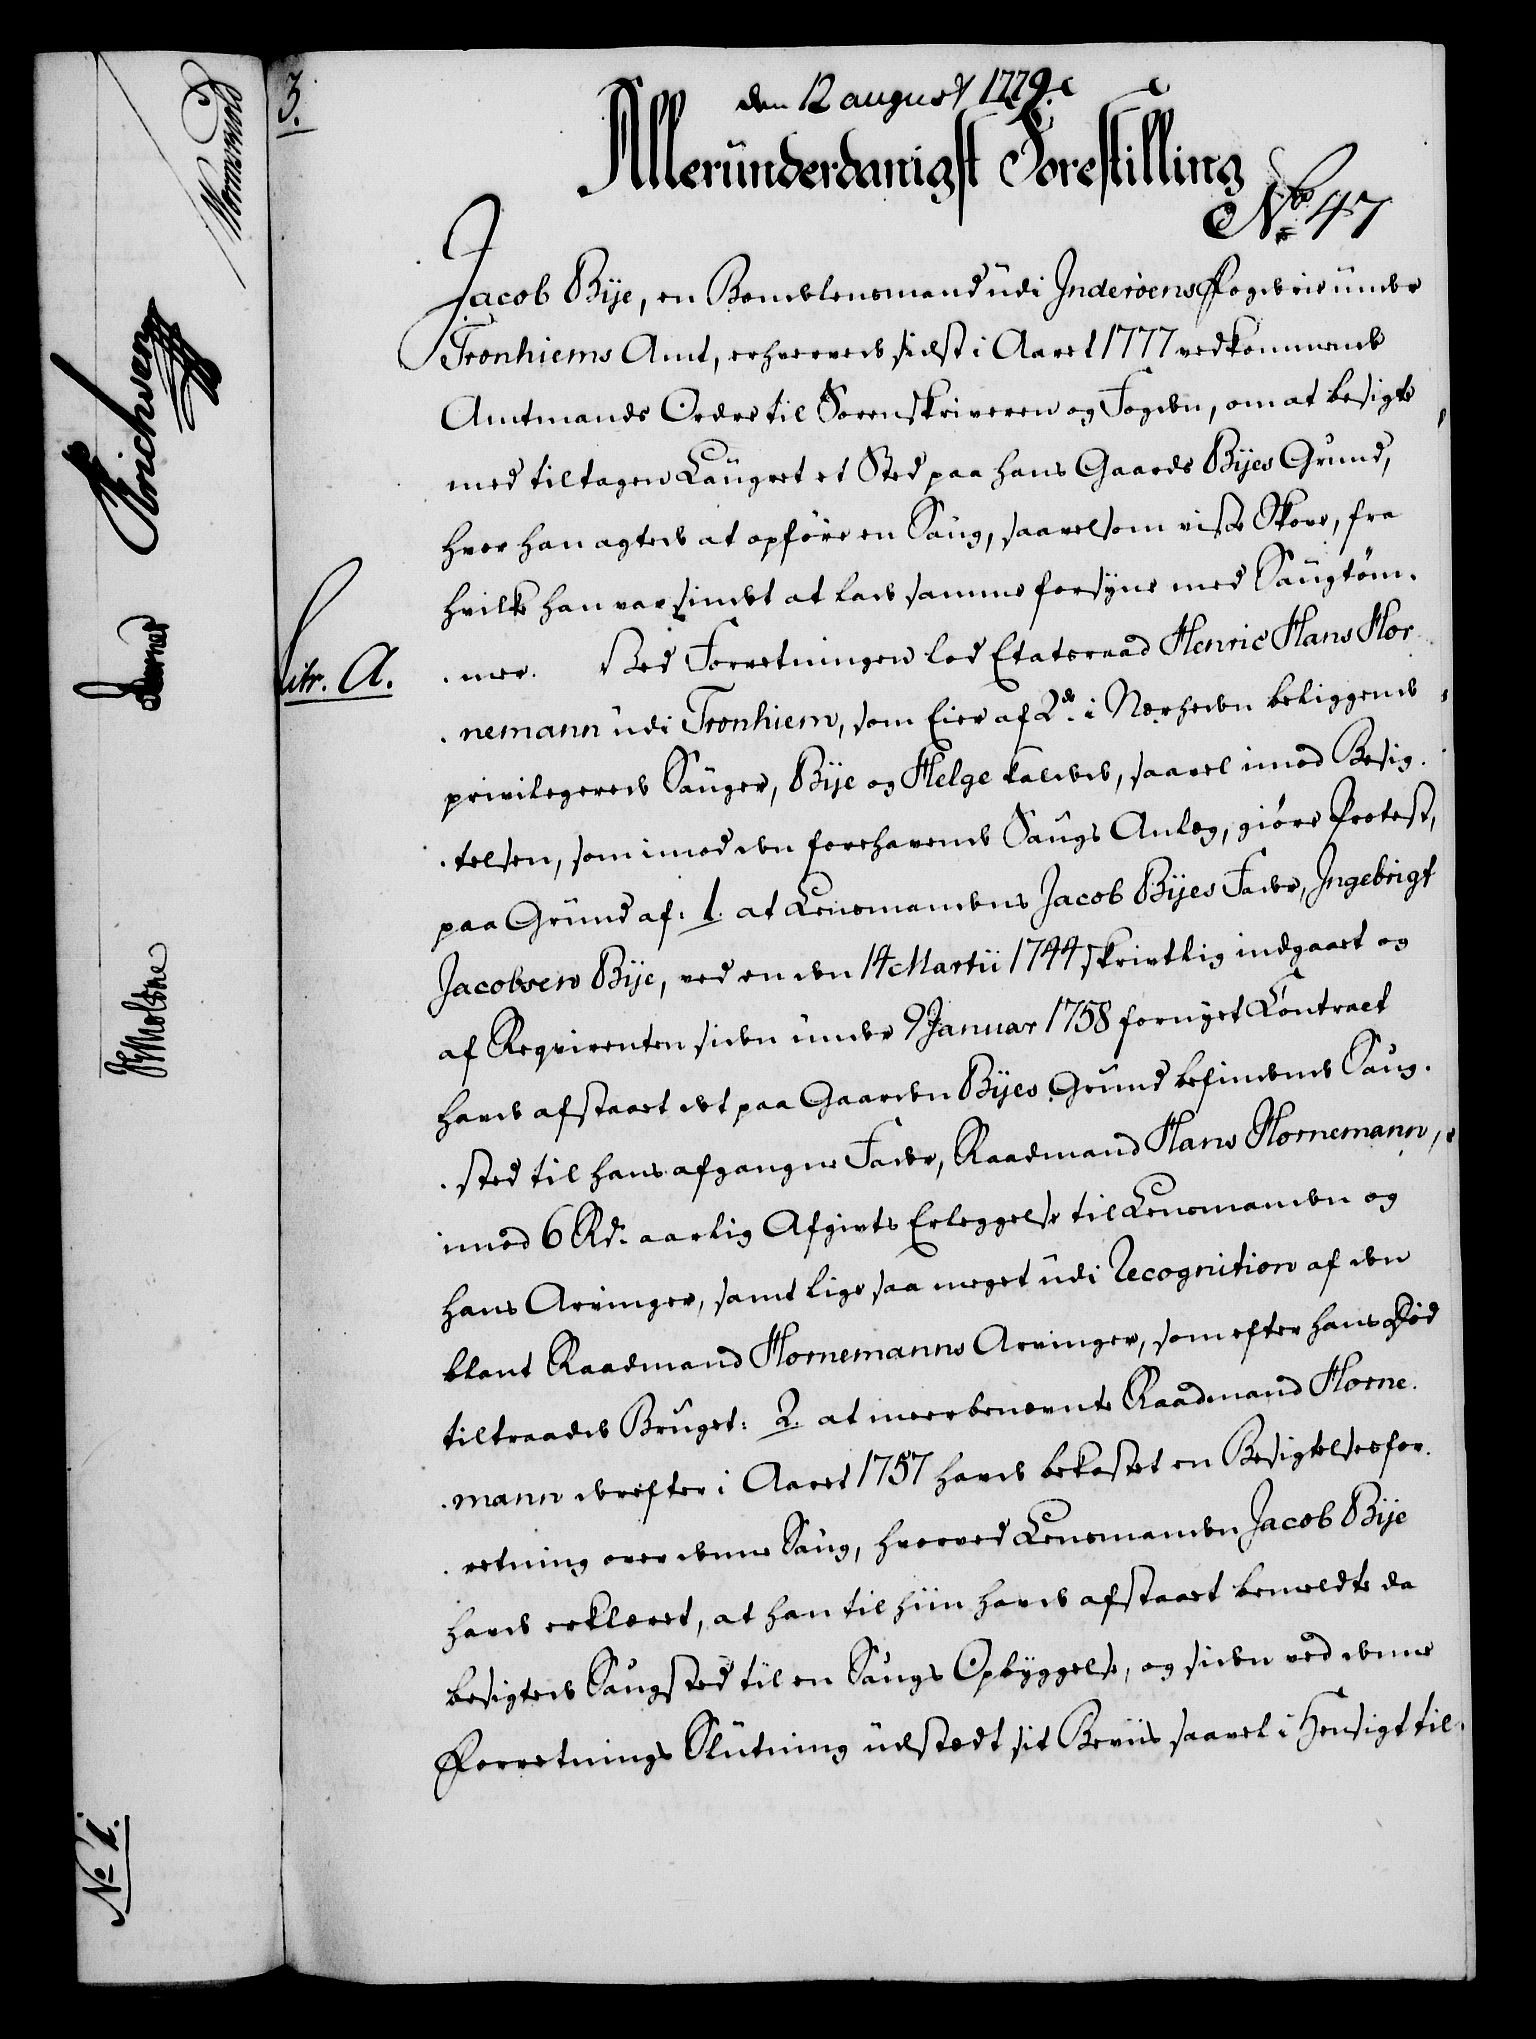 3.
den 12 august 1779.
Allerunderdanigst Forestilling
No 47
Jacob Bije, en Bondelensmand udi Inderöens Fogderie under
Tronhiems Amt, erhvervede sidst i Aaret 1777 vedkommende
Amtmands Ordre til Sorenskriveren og Fogden, om at besigte
med tiltagen Laugret et Sted paa hans Gaards Bijes Grund,
hvor han agtede at opföre en Saug, saavelsom visse Skove, fra
hvilke han var sindet at lade samme forsyne med Saugtöm-
mer. Ved Forretningen lod Etatsraad Henric Hans Hor-
Litr. A.
nemann udi Tronhiem, som Eier af 2de i Nærheden beliggende
privilegerede Sauger, Bije og Helge kaldede, saavel imod Besig-
telsen, som imod den forehavende Saugs Anlæg, giöre Protest,
paa Grund af: 1. at Lensmandens Jacob Bijes Fader, Ingebrigt
Jacobsen Bije, ved en den 14 Martii 1744 skrivtlig indgaaet og
af Reqvirenten siden under 9 Januar 1758 fornyet Contract
havde afstaaet det paa Gaarden Bijes Grund befindende Saug-
sted til hans afgangne Fader, Raadmand Hans Hornemann,
imod 6 Rd. aarlig Afgivts Erleggelse til Lensmanden og
hans Arvinger, samt lige saa meget udi Recognition af den
blant Raadmand Hornemanns Arvinger, som efter hans Död
tiltraadde Bruget: 2. at meerbenævnte Raadmand Horne-
mann derefter i Aaret 1757 havde bekostet en Besigtelsesfor-
retning over denne Saug, hvorved Lensmanden Jacob Bije
havde erklæret, at han til hiin havde afstaaet bemeldte da
besigtede Saugsted til en Saugs Opbyggelse, og siden ved denne
Forretnings Slutning udstædt sit Beviis saavel i Hensigt til
No 1.